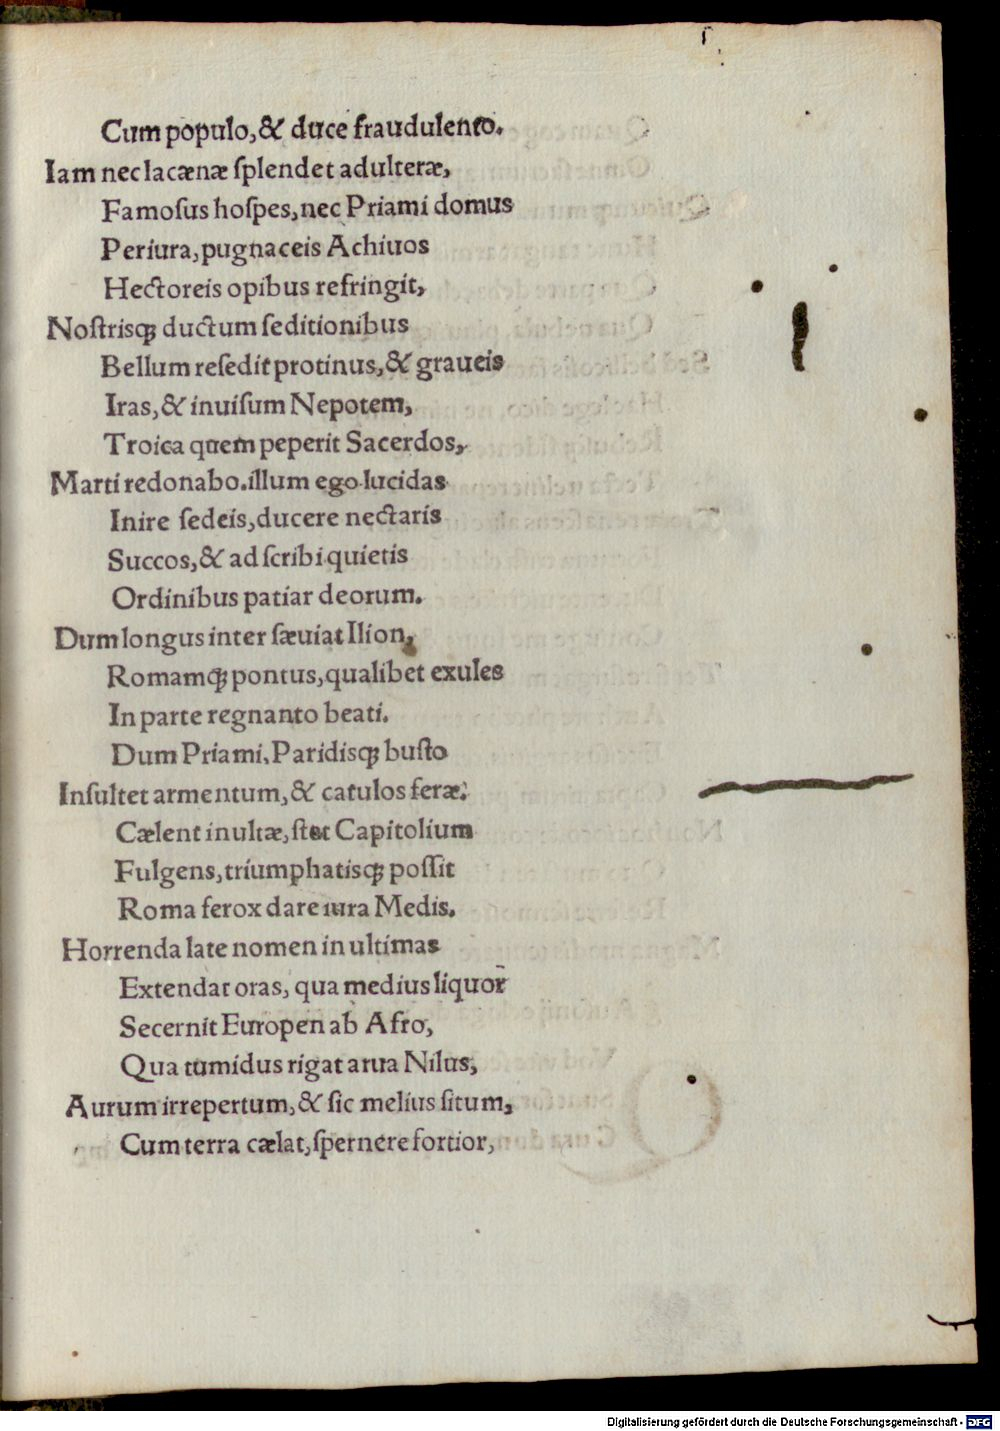 Cum populo, & duce fraudulento.
Iam nec lacænæ ſplendet adulteræ,
Famoſus hoſpes, nec Priami domus
Periura, pugnaceis Achiuos
Hectoreis opibus refringit,
Noſtrisqꝫ ductum ſeditionibus
Bellum reſedit protinus, & graueis
Iras, & inuiſum Nepotem,
Troica quem peperit Sacerdos,
Marti redonabo. illum ego lucidas
Inire ſedeis, ducere nectaris
Succos, & adſcribi quietis
Ordinibus patiar deorum.
Dum longus inter ſæuiat Ilion,
Romamqꝫ pontus, qualibet exules
In parte regnanto beati.
Dum Priami, Paridisqꝫ buſto
Inſultet armentum, & catulos feræ.
Cælent inultæ, ſtet Capitolium
Fulgens, triumphatisqꝫ poſſit
Roma ferox dare iura Medis.
Horrenda late nomen in ultimas
Extendat oras, qua medius liquor
Secernit Europen ab Afro,
Qua tumidus rigat arua Nilus,
Aurum irrepertum, & ſic melius ſitum,
Cum terra cælat, ſpernere fortior,
Digitalisierung gefördert durch die Deutsche Forschungsgemeinschaft - DFG